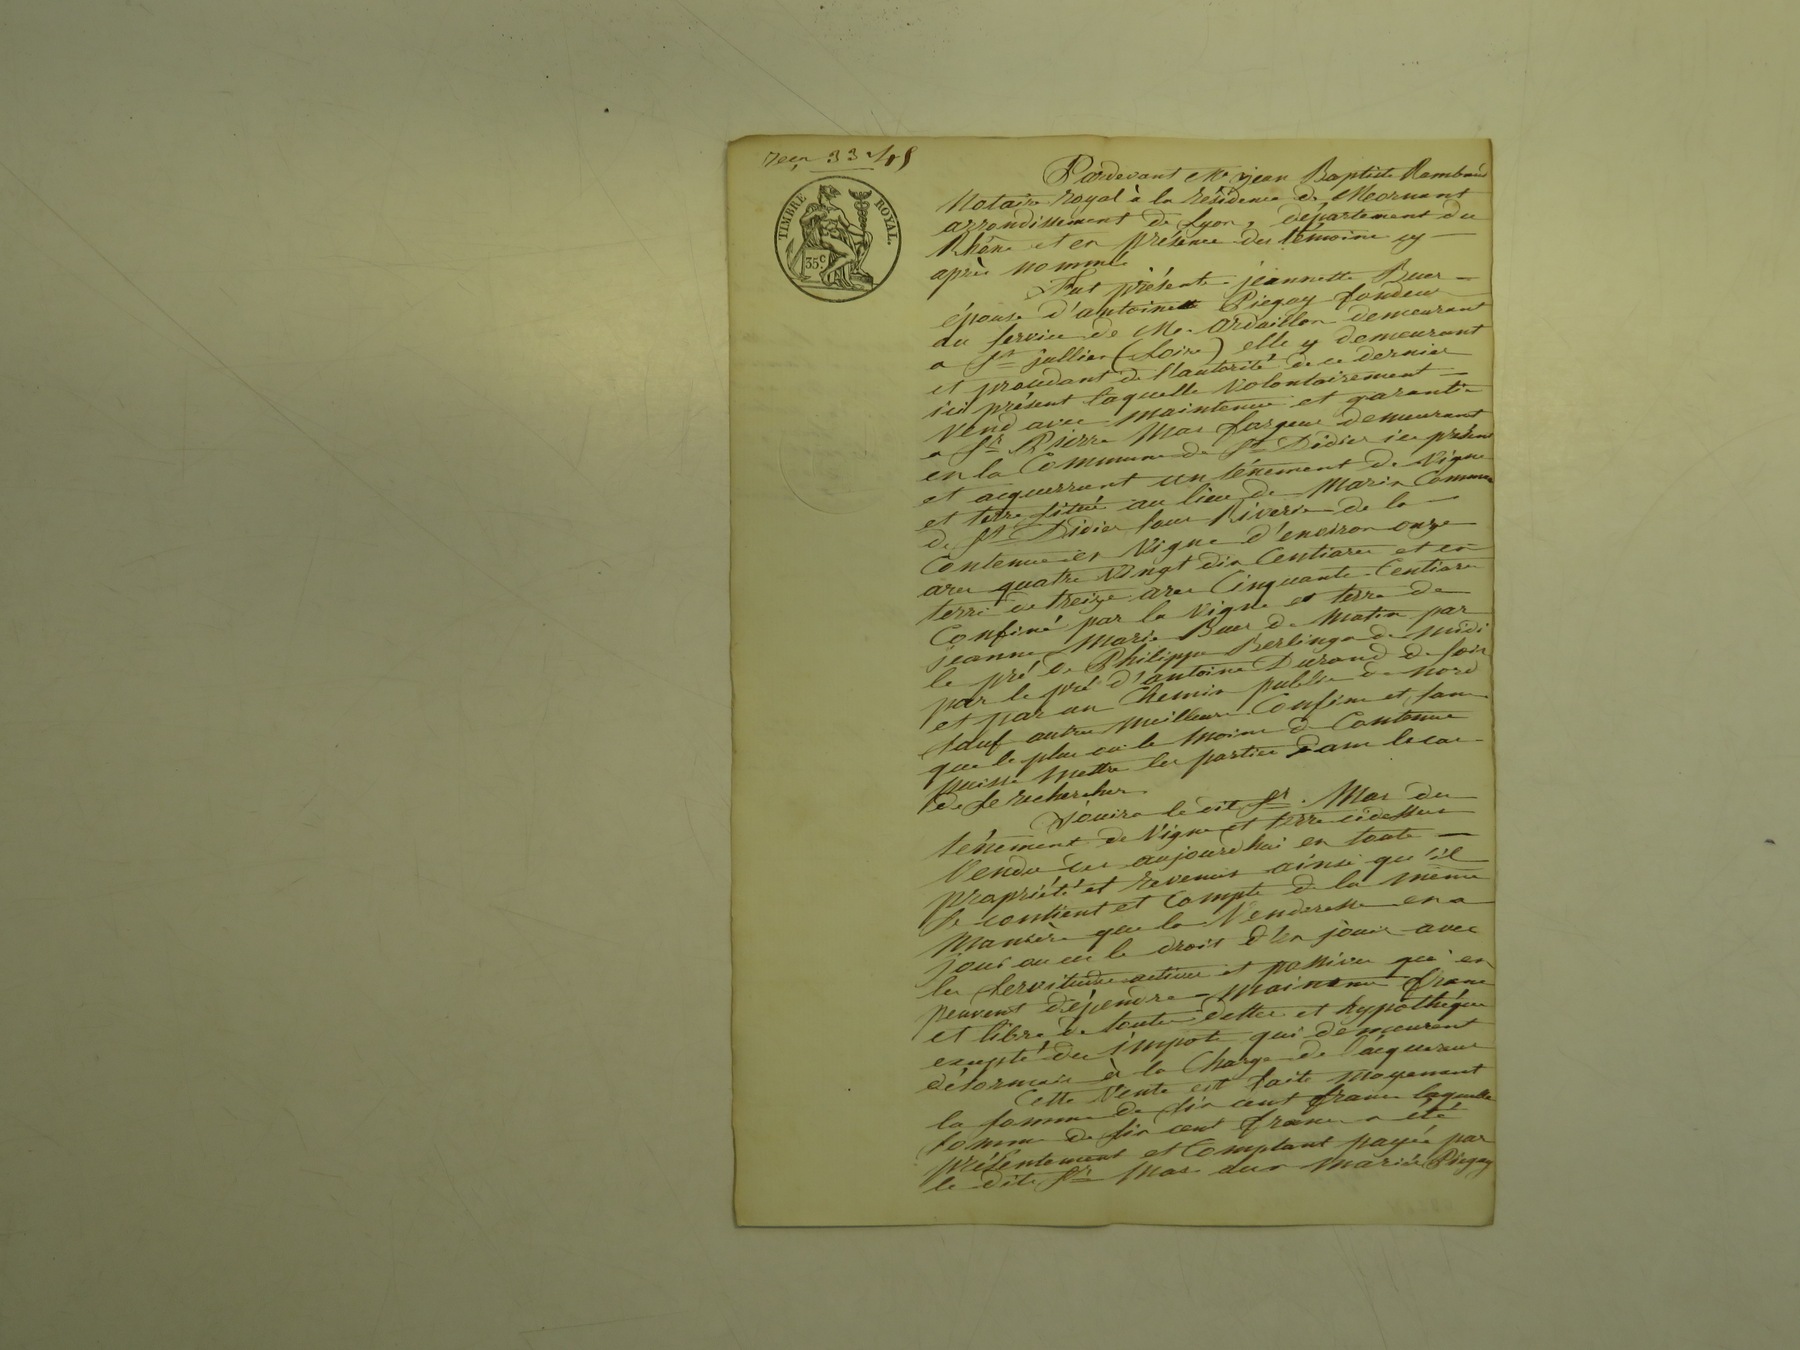 33
TIMBRE ROYAL.
35c
Pardevant Me jean Baptiste Rambaud
Notaire royal à la résidence de Mornant
arrondissement de Lyon, département du
Rhône et en présence des témoins cy
après nommés
Fut présente jeannette Buer
épouse d'antoine Piegay fondeur
au service de Mr. ardaillon demeurant
a St jullien (Loire) elle y demeurant
et procédant de l'autorité de ce dernier
ici présent laquelle volontairement
vend avec maintenue et garantie
a Sr Pierre Mas demeurant
en la Commune de St Didier ice présent
et acquerrant un ténement de vigne
et terre situé au lieu de Marin Commune
de St Didier sous Riverie de la
Contenue en vigne d'environ onze
ares quatre vingt dix Centiares et en
terre de treize ares Cinquante Centiares
Confiné par la vigne et terre de
jeanne Marie Buer de Matin par
le pré de Philippe Berlinga de midi
par le pré d'antoine Durand de soir
et par un Chemin public de nord
Sauf autres meilleurs Confins et sans
que le plus ou le moins de Contenue
puisse mettre les parties dans le cas
de se rechercher.
Jouira le dit Sr. Mas du
ténement de vigne et terre cidessus
Vendu dès aujourdhui en toute
propriété et revenus ainsi qu'il
se contient et Compte de la même
manière que la Venderesse en a
joui ou eu le droit d'en jouir avec
les servitudes actives et passives qui en
peuvent dépendre franc
et libre de toutes dettes et hypothéques
excepté des impots qui demeurent
désormais à la Charge de l'acquereur
Cette Vente est faite moyenant
la somme de six cent francs laquelle
somme de six cent francs a été
présentement et Comptant payée par
le dit Sr Mas aux mariés Piegay